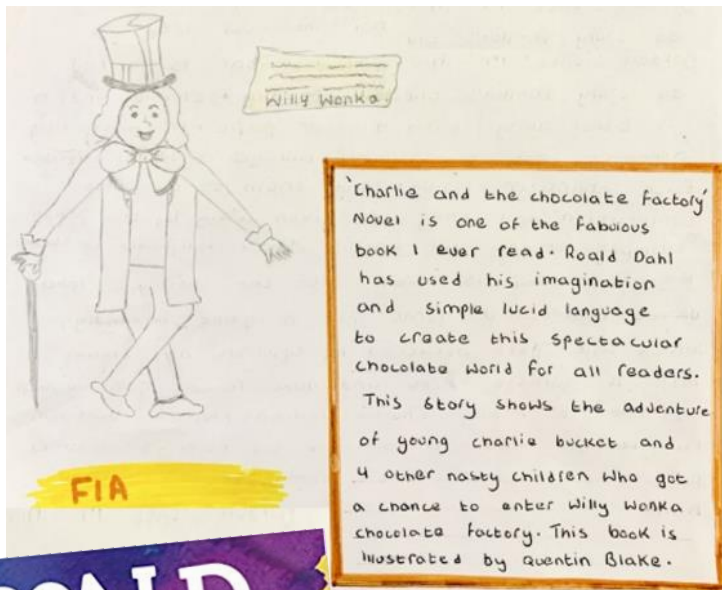 Willy Wonka.
'Charlie and the chocolate Factory'
Novel is one of the fabulous
book I ever read. Roald Dahl
has used his imagination
and simple lucid language
to create this spectacular
chocolate world for all readers.
This story shows the adventure
of young charlie bucket and
4 other nasty children who got
a chance to enter Willy Wonka
chocolate factory. This book is
illustrated by Quentin Blake.
FIA